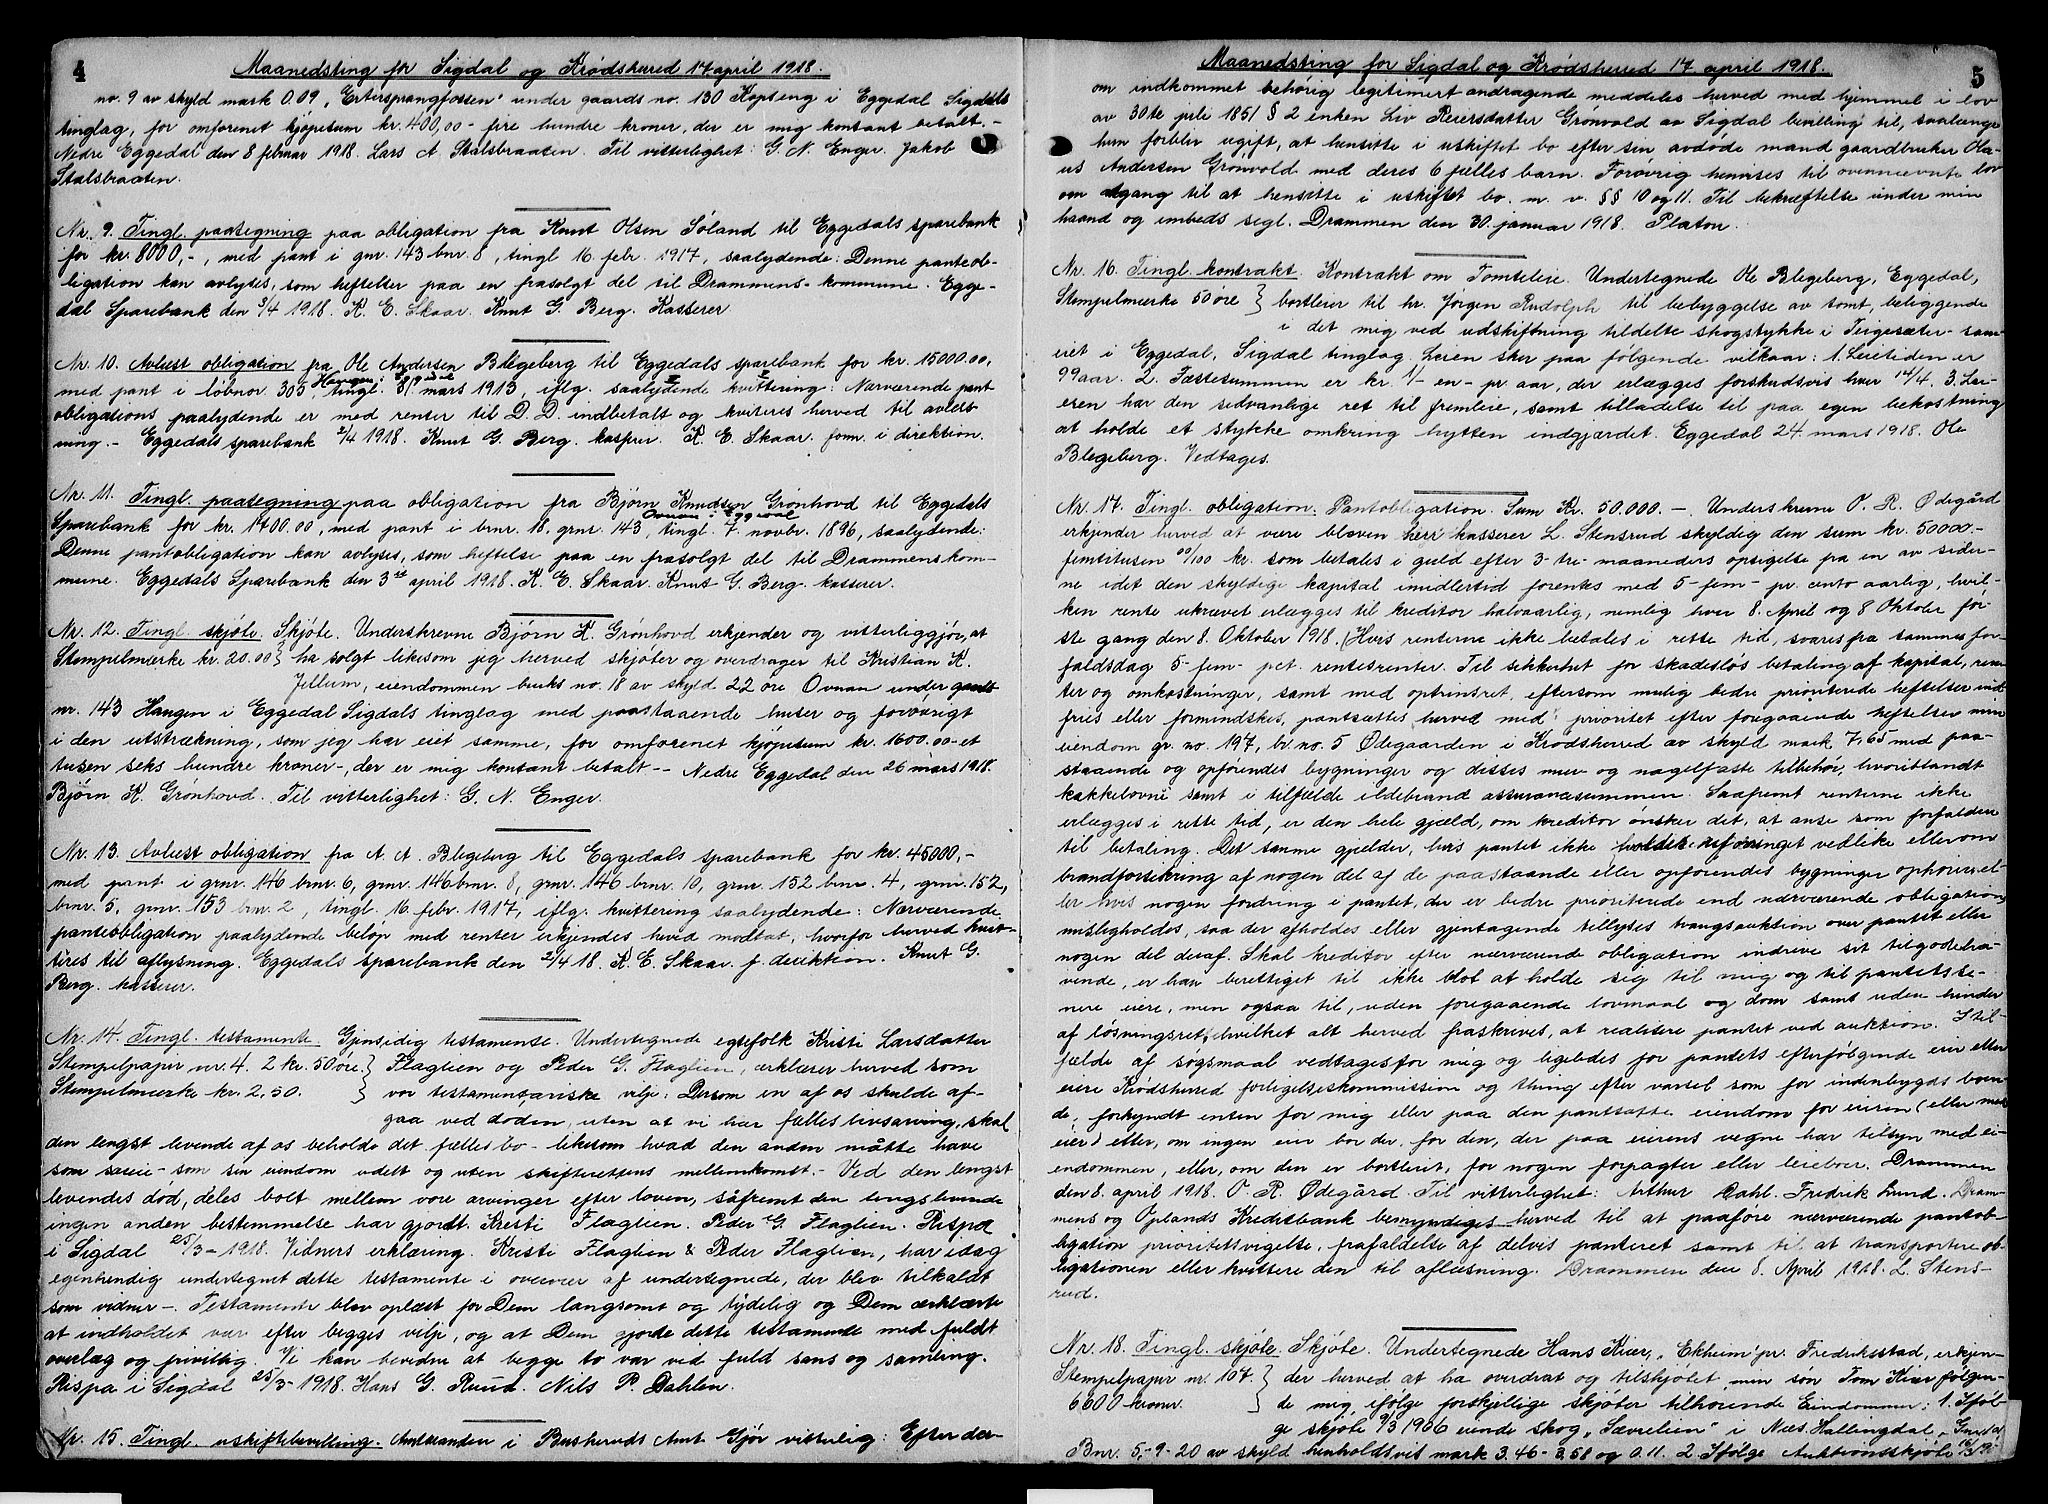 4
Maanedsting for Sigdal og Krødsherred 17 april 1918.
no. 9 av skyld mark 0.09 „Ertersprangfossen" under gaards no. 130 Kopseng i Eggedal Sigdals
tinglag, for omforenet kjøpesum kr. 400,00 - fire hundre kroner, der er mig kontant betalt. -
Nedre Eggedal den 8 februar 1918. Lars A. Stalsbraaten. Til vitterlighet: G. N. Enger. Jakob
Stalsbraaten.
Nr. 9. Tingl. paategning paa obligation fra Knut Olsen Søland til Eggedals sparebank
for kr. 8000,-, med pant i gnr. 143 bnr. 8, tingl 16 febr. 1917, saalydende: Denne panteob-
ligation kan avlyses, som heftelser paa en frasolgt del til Drammens-kommune. Egge-
dal Sparebank den 3/4 1918. K. E. Skaar. Knut G. Berg. Kasserer.
Nr. 10. Avlæst obligation fra Ole Andersen Blegeberg til Eggedals sparebank for kr. 15000.00,
med pant i løbnr. 305 Haugen i Eggedal, tingl. 8/ mars 1913, iflg. saalydende kvittering: Nærværende pant
obligations paalydende er med renter til D. D. indbetalt og kviteres herved til avlæs-
ning. - Eggedals sparebank 2/4 1918. Knut G. Berg. kasserer. K. E. Skaar. form. i direktion.
Nr. 11. Tingl. paategning paa obligation fra Bjørn Knudsen Grønhovd til Eggedals
Sparebank for kr. 1400.00, med pant i bnr. 18, gnr. 143, Ovnan i Eggedal tingl. 7. novbr. 1896, saalydende:
Denne pantobligation kan avlyses, som heftelse paa en frasolgt del til Drammens kom-
mune. Eggedals Sparebank den 3die april 1918. K. E. Skaar. Knut G. Berg. kasserer.
Nr. 12. Tingl. skjøte. Skjøte. Underskrevne Bjørn K. Grønhovd erkjender og vitterliggjør, at
Stempelmærke kr. 20.00 } ha solgt likesom jeg herved skjøter og overdrager til Kristian K.
Jellum, eiendommen bruks no. 18 av skyld 22 øre Ovnan under gaards
nr. 143 Haugen i Eggedal Sigdals tinglag med paastaaende huser og forøvrigt
i den utstrækning, som jeg har eiet samme, for omforenet kjøpesum kr. 1600.00 - et
tusen seks hundre kroner -, der er mig kontant betalt. - Nedre Eggedal den 26 mars 1918.
Bjørn K. Grønhovd. Til vitterlighet: G. N. Enger.
Nr. 13. Avlæst obligation fra A. A. Blegeberg til Eggedals sparebank for kr. 45000,-
med pant i gnr. 146 bnr. 6, gnr. 146 bnr. 8, gnr. 146 bnr. 10, gnr. 152 bnr. 4, gnr. 152,
bnr. 5, gnr. 153 bnr. 2, tingl. 16. febr. 1917, iflg. kvittering saalydende: Nærværende
panteobligation paalydende beløp med renter erkjendes herved modtat, hvorfor herved kvit-
tires til aflysning. Eggedals sparebank den 2/4 18. K. E. Skaar. f. direktion. Knut G.
Berg. kasserer.
Nr. 14. Tingl. testamente. Gjensidig testamente. Undertegnede egtefolk Kristi Larsdatter
Stempelpapir nr. 4. 2 kr. 50 øre. } Flaglien og Peder G. Flaglien, erklærer herved som
Stempelmerke kr. 2,50. } vor testamentariske vilje: Dersom en af os skulde af-
gaa ved døden, uten at vi har fælles livsarving, skal
den lengst levende af os beholde det fælles bo - likesom hvad den anden måtte have
som sæeie - som sin eiendom udelt og uten skifterettens mellemkomst. - Ved den lengst
levendes død, deles bolt mellem vore arvinger efter loven, såfremt den lengstlevende
ingen anden bestemmelse har gjordt. Kristi Flaglien. Peder G. Flaglien. Rispa
i Sigdal 25/3 - 1918. Vidners erklæring. Kristi Flaglien & Peder Flaglien, har idag
egenhendig undertegnet dette testamente i overvær af undertegnede, der blev tilkaldt
som vidner -. Testamente blev oplæst for Dem langsomt og tydelig og Dem ærklærte
at indholdet var efter begges vilje, og at Dem gjorde dette testamente med fuldt
overlæg og frivillig. Vi kan bevidne at begge to var ved fuld sans og samling.
Rispa i Sigdal 25/3 - 1918. Hans G. Ruud. Nils P. Dahlen.
Nr. 15. Tingl. uskiftebevilling. Amtmanden i Buskeruds Amt Gjør vitterlig: Efter der-
5
Maanedsting for Sigdal og Krødsherred 17 april 1918.
om indkommet behørig legitimert andragende meddeles herved med hjemmel i lov
av 30te juli 1851 § 2 enken Liv Reiersdatter Grønvold av Sigdal bevilling til, saalænge
hun forblir ugift, at hensitte i uskiftet bo efter sin avdøde mand gaardbruker Ola-
us Andersen Grønvold med deres 6 fælles barn. Forøvrig henvises til ovennævnte lov
om adgang til at hensitte i uskiftet bo. m. v. §§ 10 og 11. Til bekræftelse under min
haand og embeds segl. Drammen den 30. januar 1918. Platou.
Nr. 16. Tingl. kontrakt. Kontrakt om Tomteleie. Undertegnede Ole Blegeberg, Eggedal,
Stempelmerke 50 øre } bortleier til hr. Jørgen Rudolph til bebyggelse av tomt, beliggende
i det mig ved udskiftning tildelte skogstykke i Teigesæter - sam-
eiet i Eggedal, Sigdal tinglag. Leien sker paa følgende vilkaar: 1. Leietiden er
99 aar. 2. Fæstesummen er kr. 1/- en - pr aar, der erlægges forskudsvis hver 14/4. 3. Lei-
eren har den sedvanlige ret til fremleie, samt tilladelse til paa egen bekostning
at holde et stykke omkring hytten indgjærdet. Eggedal 24. mars 1918. Ole
Blegeberg. Vedtages.
Nr. 17. Tingl. obligation. Pantobligation. Sum Kr. 50.000. -. Underskrevne O. R. Ødegård
erkjender herved at være bleven herr kasserer L. Stensrud skyldig den sum kr. 50000 -
femtitusen 00/100 kr. som betales i guld efter 3 - tre - maaneders opsigelse paa en av sider-
ne idet den skyldige kapital imidlertid forentes med 5 - fem - pr. cento aarlig, hvil-
ken rente ukrævet erlægges til kreditor halvaarlig, nemlig hver 8. April og 8 Oktober før-
ste gang den 8. Oktober 1918. (Hvis renterne ikke betales i rette tid, svares fra sammes for-
faldsdag 5 - fem - pct. rentesrenter. Til sikkerhet for skadesløs betaling af kapital, ren-
ter og omkostninger, samt med optrinsret, eftersom mulig bedre prioriterede heftelser ind-
fries eller formindskes, pantsættes herved med prioritet efter foregaaende heftelser min
eiendom gr. no. 197, br. no. 5 Ødegaarden i Krødsherred av skyld mark 7,65 med paa-
staaende og opførendes bygninger og disses mur og nagelfaste tilbehør, hvoriblandt
kakkelovne samt i tilfælde ildebrand assurancesummen. Saafremt renterne ikke
erlægges i rette tid, er den hele gjæld, om kreditor ønsker det, at anse som forfalden
til betaling. Det samme gjelder, hvis pantet ikke holdes uforringet vedlike eller om
brandforsikring af nogen del af de paastaande eller opførendes bygninger ophører, el-
ler hvis nogen fordring i pantet, der er bedre prioriterede end nærværende obligation
misligholdes, saa der afholdes eller gjentagende tillyses tvangsauktion over pantet eller
nogen del deraf. Skal kreditor efter nærværende obligation indrive sit tilgodeha-
vende, er han berettiget til ikke blot at holde sig til mig og til pantets se-
nere eiere, men ogsaa til, uden foregaaende lovmaal og dom samt uden hinder
af løsningsret, hvilket alt herved fraskrives, at realisere pantet ved auktion. I til-
fælde af søgsmaal vedtages for mig og ligeledes for pantets efterfølgende eier eller
eiere Krødsherred forligelseskommission og thing efter varsel som for indenbygds boen-
de, forkyndt enten for mig eller paa den pantsatte eiendom for eieren (eller med
eier) eller, om ingen eier bor der, for den, der paa eierens vegne har tilsyn med ei-
endommen, eller, om den er bortleiet, for nogen forpagter eller leieboer. Drammen
den 8. april 1918. O. R. Ødegård. Til vitterlighet: Arthur Dahl. Fredrik Lund. Dram-
mens og Oplands Kreditbank bemyndiges herved til at paaføre nærværende pantob-
ligation prioritetsvigelse, frafaldelse af delvis panteret samt til at transportere ob-
ligationen eller kvittere den til aflæsning. Drammen den 8. April 1918. L. Stens-
rud.
Nr. 18. Tingl. skjøte. Skjøte. Undertegnede Hans Kiær, „Ekheim" pr. Fredriksstad, erkjen-
Stempelpapir nr. 107. } der herved at ha overdrat og tilskjøtet min søn Tom Kiær følgen-
6600 kroner. } de mig ifølge forskjellige skjøter tilhørende Eiendommer: 1. Iføl-
ge skjøte 9/3 1906 eiende skog „Sævrelien" i Næs Hallingdal,
Bnr. 5 - 9 - 20 av skyld henholdsvis mark 3.46 - 3.58 og 0.11. 2. Ifølge Auktionsskjøte